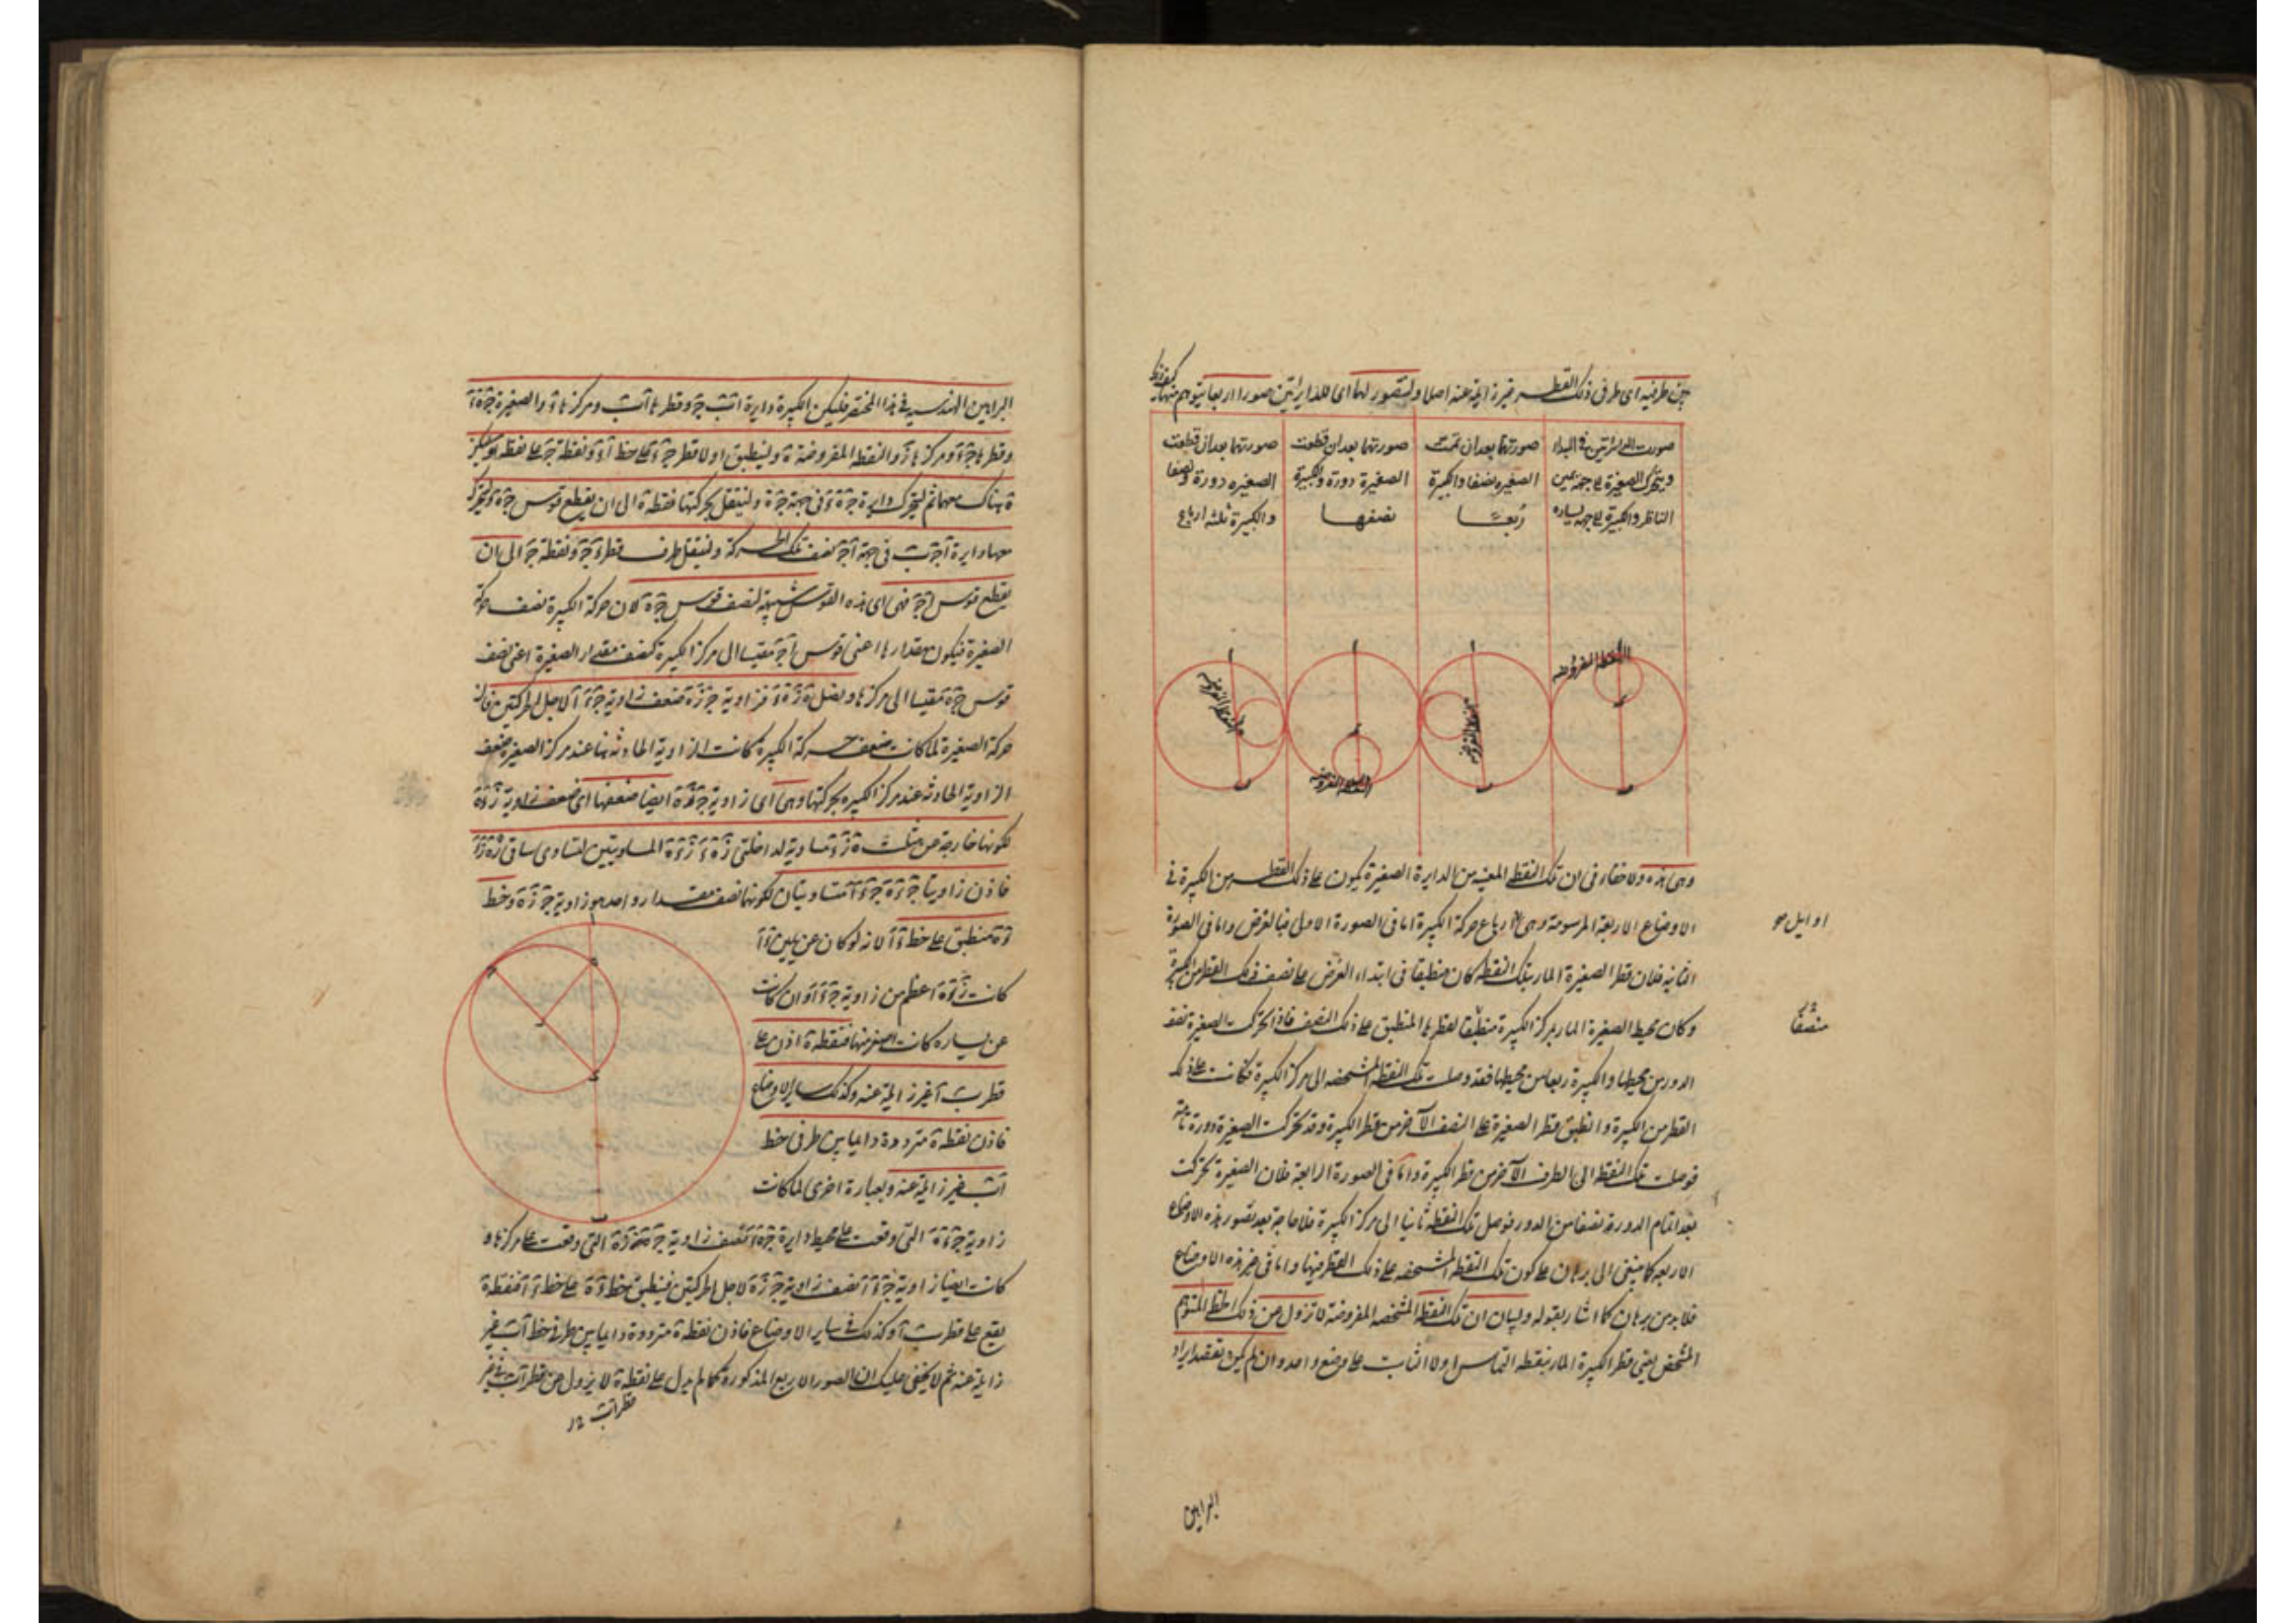 بين طرفيه اى طرفى ذلك القطر غير زايلة عنه اصلا ولنتصور لهما اى للدايرتين صورا اربعا يتوهم منها
صورت الدايرتين فى البداء
ويتحرك الصغيرة الى جهة يمين
الناظر والكبيرة الى جهة يساره
صورتهما بعد ان تمت
الصغيره نصفا والكبيرة
رُبعًا
صورتهما بعد ان قطعت
الصغيرة دورة والكبيرة
نصفها
صورتهما بعد ان قطعت
الصغيره دورة ونصفا
والكبيرة ثلثه ارباع
النقطة المفروضه
النقطة المفروضه
النقطة المفروضه
النقطة المفروضه
وهى هذه ولا خفاء فى ان تلك النقطة المعينه من الدايرة الصغيرة يكون على ذلك القطر من الكبيرة فى
الاوضاع الاربعة المرسومة وهى ارباع حركة الكبيرة اما فى الصورة الاولى فبالفرض واما فى الصورة
اوايل
الثانيه فلان قطر الصغيرة المار بتلك النقطه كان منطبقا فى ابتداء الفرض على نصف ذلك القطر من الكبيرة
وكان محيط الصغيرة المار بمركز الكبيرة منطبقا لقطرها المنطبق على ذلك النصف فاذا تحركت الصغيرة نصف
منصفا
الدور من محيطها والكبيرة ربعا من محيطها فقد وصلت تلك النقطة المشخصه الى مركز الكبيرة فكانت على ذلك
القطر من الكبيرة وانطبق قطر الصغيرة على النصف الآخر من قطر الكبيرة وقد تحركت الصغيرة دورة تامة
فوصلت تلك النقطة الى الطرف الآخر من قطر الكبيرة واما فى الصورة الرابعة فلان الصغيرة تحركت
بعد اتمام الدورة نصفا من الدور فوصل تلك النقطه ثانيا الى مركز الكبيرة فلا حاجة بعد تصور هذه الاوضاع
الاربعه كما ينبغى الى برهان على كون تلك النقطة المشخصه على ذلك القطر فيها واما فى غير هذه الاوضاع
فلا بد من برهان كما اشار بقوله ولبيان ان تلك النقطة المشخصه المفروضة لا تزول عن ذلك الخط المتوهم
المشخص يعنى قطر الكبيرة المار بنقطه التماس اولا الثابت على وضع واحد وان لم يكن بقصد ايراد
البراهين
البراهين الهندسيه فى هذا المختصر فليكن الكبيرة دايرة اب جـ وقطرها اب ومركزها د والصغيرة جـ ه د
وقطرها جـ د ومركزها ز والنقطة المفروضة ه ولينطبق اولا قطر جـ د على خط ا د ونقطة جـ على نقطه ا وليكن
ه هناك معهما ثم ليتحرك دايرة جـ ه د فى جهة جـ ه ولينتقل بحركتها نقطة ه الى ان يقطع قوس جـ ه وليتحرك
معها دايرة ا جـ ب فى جهة ا جـ نصف تلك الحركة ولينتقل طرف قطر د جـ ونقطة جـ الى ان
يقطع قوس ا جـ فهى اى هذه القوس شبيهة لنصف قوس جـ ه لان حركة الكبيرة نصف حركة
الصغيرة فيكون مقدارها اعنى قوس ا جـ مقيسا الى مركز الكبيرة كنصف مقدار الصغيرة اعنى نصف
قوس جـ ه مقيسا الى مركزها ونصل ه ز ه د فزاوية جـ ز ه ضعف زاوية جـ د ا لاجل الحركتين فان
حركة الصغيرة لما كانت ضعف حركة الكبيرة كانت الزاوية الحادثه بها عند مركز الصغيرة ضعف
الزاوية الحادثه عند مركز الكبيره بحركتها وهى اى زاوية جـ ز ه ايضا ضعفها اى ضعف زاوية ز د ه
لكونها خارجة عن مثلث ه ز د مساوية لداخلتى ز ه د ز د ه المساويتين لتساوى ساقى ز ه ز د
فاذن زاويتا جـ د ه جـ د ا متساويتان لكونهما نصف مقدار واحد هو زاوية جـ ز ه وخط
د ه منطبق على خط د ا لانه لو كان عن يمين د ا
كانت ز د ه اعظم من زاوية جـ د ا وان كانت
عن يساره كانت اصغر منها فنقطة ه اذن على
قطر ب ا غير زايلة عنه وكذلك ساير الاوضاع
فاذن نقطة ه مترددة دايما بين طرفى خط
اب غير زايلة عنه وبعبارة اخرى لما كانت
زاوية جـ د ه التى وقعت على محيط دايرة جـ ه د نصف زاوية جـ ز ه التى وقعت على مركزها و
كانت ايضا زاوية جـ د ا نصف زاوية جـ ز ه لاجل الحركتين فينطبق خط د ه على خط د ا فنقطة ه
يقع على قطر ب ا وكذلك فى ساير الاوضاع فاذن نقطة ه مترددة دايما بين طرفى خط اب غير
زايلة عنه ثم لا يخفى عليك ان الصور الاربع المذكورة كما لم يدل على نقطة ه لا يزول عن قطر اب فى غير
قطر اب